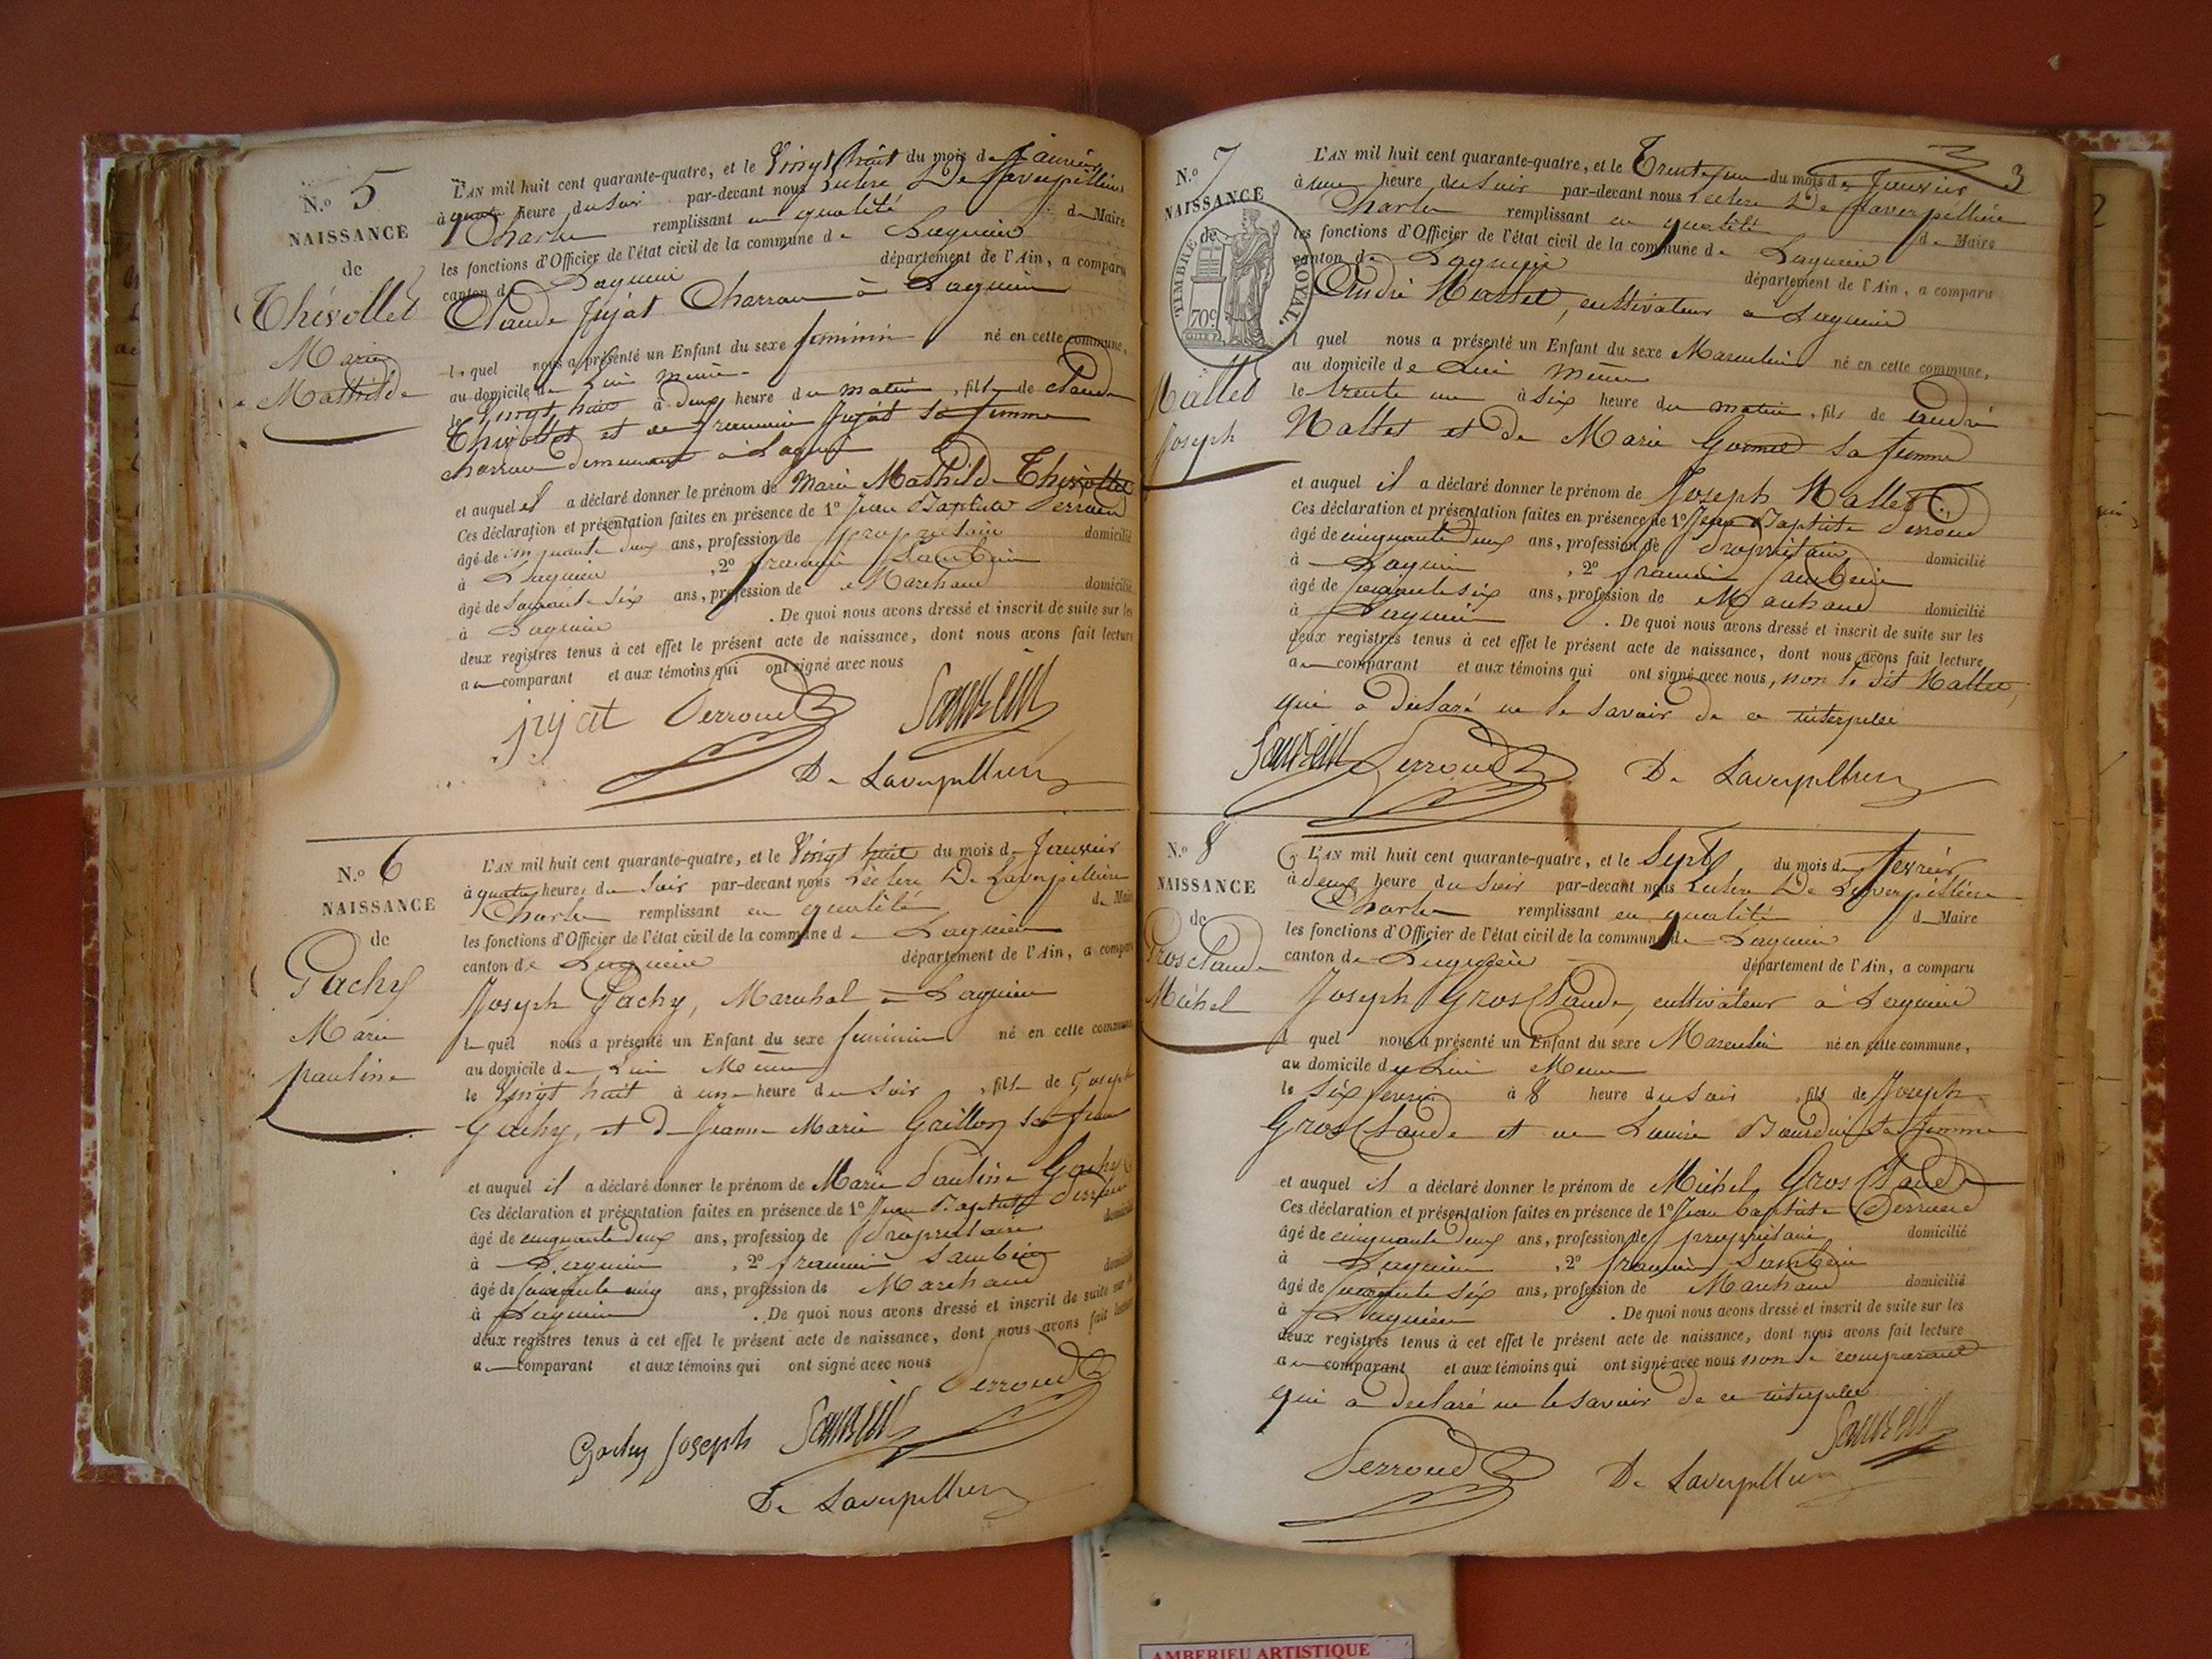 N.º 5
NAISSANCE
de
Thévollet
Marie
Mathilde
L'AN mil huit cent quarante-quatre, et le Vingt huit du mois de Janvier
à quatre heure du soir par-devant nous Leclerc De Laverpillière
Charles remplissant en qualité de Maire
les fonctions d'Officier de l'état civil de la commune de Lagnieu
canton de Lagnieu département de l'Ain, a comparu
Claude Jujat Charron à Lagnieu
le quel nous a présenté un Enfant du sexe feminin né en cette commune,
au domicile de Lui même
le Vingt huit à deux heure du matin, fille de Claude
Thévollet et de Jujat sa femme
charron demeurant à Lagnieu
et auquel il a déclaré donner le prénom de Marie Mathilde Thévollet
Ces déclaration et présentation faites en présence de 1º Jean Baptiste Perroud
âgé de cinquante deux ans, profession de propriétaire domicilié
à Lagnieu, 2º françois Sambein
âgé de soixante six ans, profession de Marchand domicilié
à Lagnieu. De quoi nous avons dressé et inscrit de suite sur les
deux registres tenus à cet effet le présent acte de naissance, dont nous avons fait lecture
au comparant et aux témoins qui ont signé avec nous
jujat Perroud Sambein
De Laverpillière
N.º 6
NAISSANCE
de
Gachy
Marie
pauline
L'AN mil huit cent quarante-quatre, et le Vingt huit du mois de Janvier
à quatre heures du soir par-devant nous Leclerc De Laverpillière
Charles remplissant en qualité de Maire
les fonctions d'Officier de l'état civil de la commune de Lagnieu
canton de Lagnieu département de l'Ain, a comparu
Joseph Gachy, Marechal à Lagnieu
le quel nous a présenté un Enfant du sexe feminin né en cette commune
au domicile de Lui Meme
le Vingt huit à une heure du soir, fille de Joseph
Gachy, et de Jeanne Marie Grillon sa femme
et auquel il a déclaré donner le prénom de Marie Pauline Gachy
Ces déclaration et présentation faites en présence de 1º Jean Baptiste Perroud
âgé de cinquante deux ans, profession de Propriétaire domicilié
à Lagnieu, 2º françois Sambein
âgé de soixante six ans, profession de Marchand domicilié
à Lagnieu. De quoi nous avons dressé et inscrit de suite sur les
deux registres tenus à cet effet le présent acte de naissance, dont nous avons fait lecture
au comparant et aux témoins qui ont signé avec nous
Perroud
Gachy Joseph Sambein
De Laverpillière
3
N.º 7
NAISSANCE
de
TIMBRE ROYAL.
70c
Nallet
Joseph
L'AN mil huit cent quarante-quatre, et le Trente un du mois de Janvier
à une heure du soir par-devant nous Leclerc De Laverpillière
Charles remplissant en qualité de Maire
les fonctions d'Officier de l'état civil de la commune de Lagnieu
canton de Lagnieu département de l'Ain, a comparu
André Nallet, cultivateur à Lagnieu
l quel nous a présenté un Enfant du sexe Masculin né en cette commune,
au domicile de Lui même
le trente un à six heure du matin, fils de André
Nallet et de Marie sa femme
et auquel il a déclaré donner le prénom de Joseph Nallet
Ces déclaration et présentation faites en présence de 1º Jean Baptiste Perroud
âgé de cinquante deux ans, profession de Propriétaire domicilié
à Lagnieu, 2º françois Sambein
âgé de soixante six ans, profession de Marchand domicilié
à Lagnieu. De quoi nous avons dressé et inscrit de suite sur les
deux registres tenus à cet effet le présent acte de naissance, dont nous avons fait lecture
au comparant et aux témoins qui ont signé avec nous, non le dit Nallet,
qui a déclaré ne le savoir de ce interpellé
Sambein Perroud De Laverpillière
N.º 8
NAISSANCE
de
Gros Claude
Michel
L'AN mil huit cent quarante-quatre, et le Sept du mois de fevrier
à deux heure du soir par-devant nous Leclerc De Laverpillière
Charles remplissant en qualité d Maire
les fonctions d'Officier de l'état civil de la commune de Lagnieu
canton de Lagnieu département de l'Ain, a comparu
Joseph Gros Claude, cultivateur à Lagnieu
l quel nous a présenté un Enfant du sexe Masculin né en cette commune,
au domicile de Lui Meme
le six fevrier à 8 heure du soir, fils de Joseph
Gros Claude et de Louise Bourdin sa femme
et auquel il a déclaré donner le prénom de Michel Gros Claude
Ces déclaration et présentation faites en présence de 1º Jean baptiste Perroud
âgé de cinquante deux ans, profession de propriétaire domicilié
à Lagnieu, 2º françois Sambein
âgé de soixante six ans, profession de Marchand domicilié
à Lagnieu. De quoi nous avons dressé et inscrit de suite sur les
deux registres tenus à cet effet le présent acte de naissance, dont nous avons fait lecture
au comparant et aux témoins qui ont signé avec nous non le comparant
qui a déclaré ne le savoir de ce interpellé
Sambein
Perroud De Laverpillière
AMBERIEU ARTISTIQUE